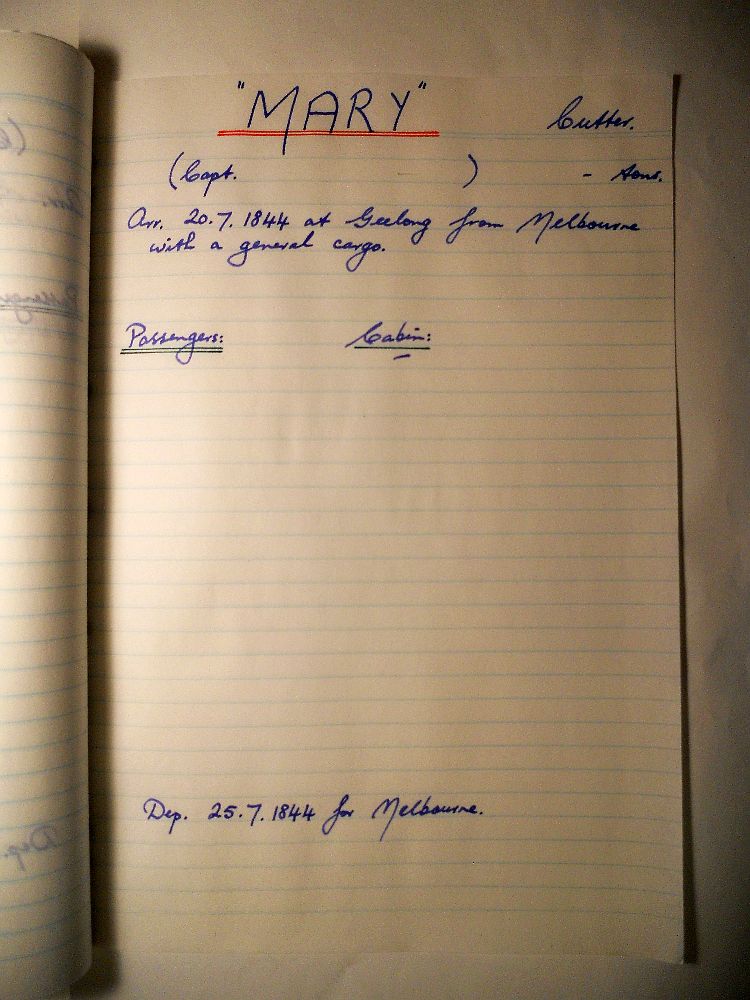 "MARY" Cutter.
(Capt. ) - tons.
Arr. 20.7.1844 at Geelong from Melbourne
with a general cargo.
Passengers: Cabin:
-
Dep. 25.7.1844 for Melbourne.